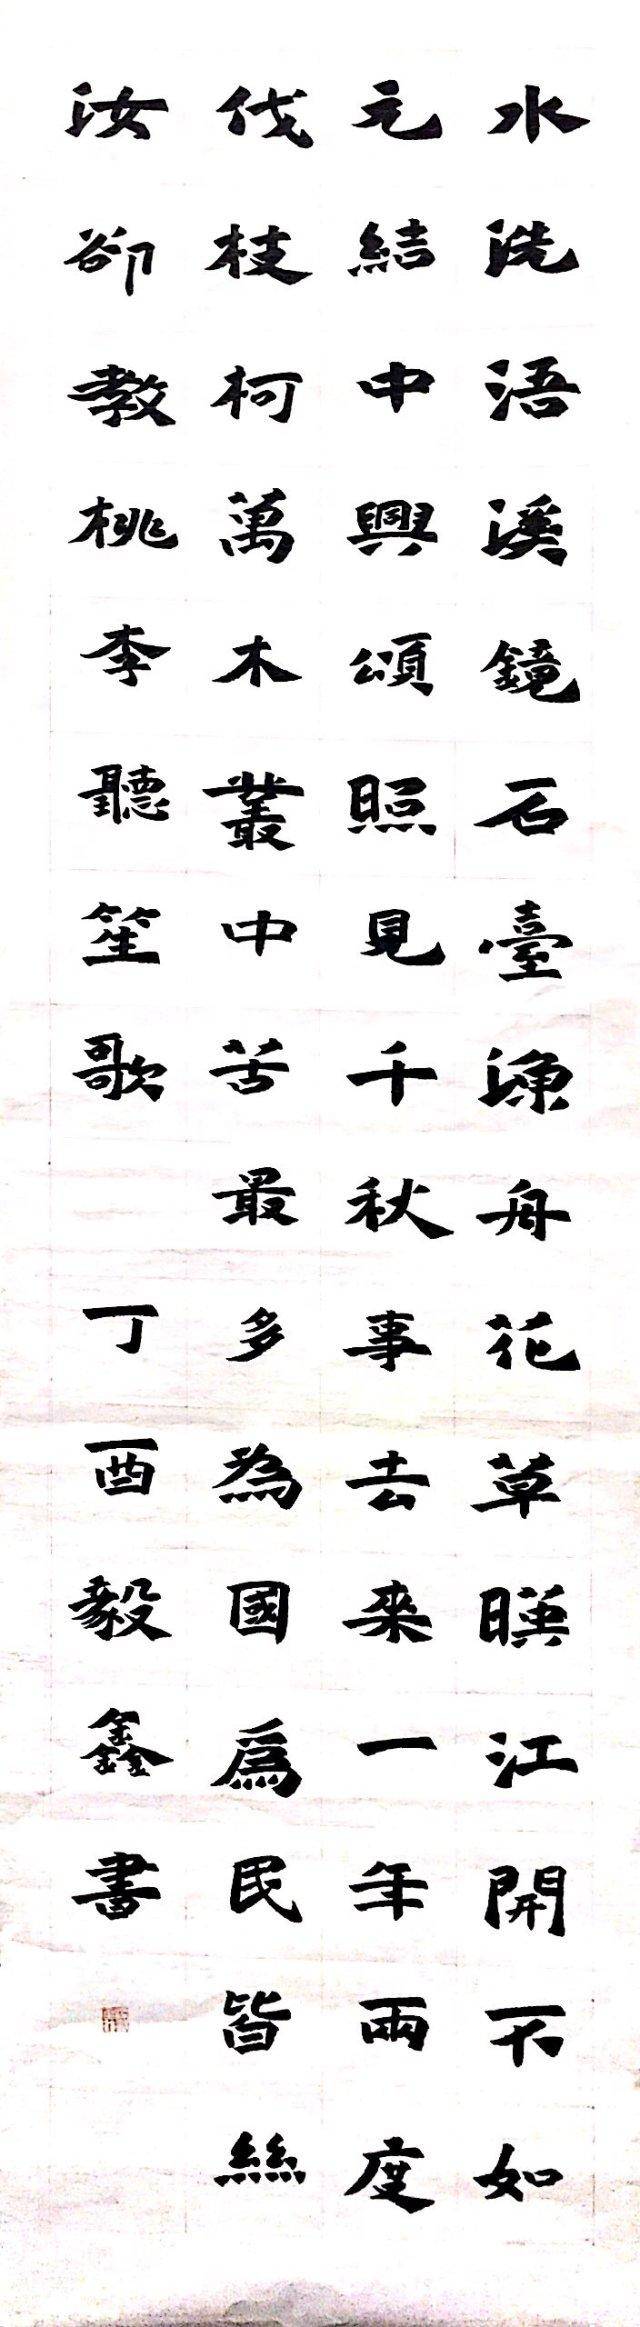 水洗浯溪鏡石臺漁舟花草暎江開不如
元結中興頌照見千秋事去來一年兩度
伐枝柯萬木叢中苦最多為國爲民皆絲
汝卻教桃李聽笙歌
丁酉毅鑫書